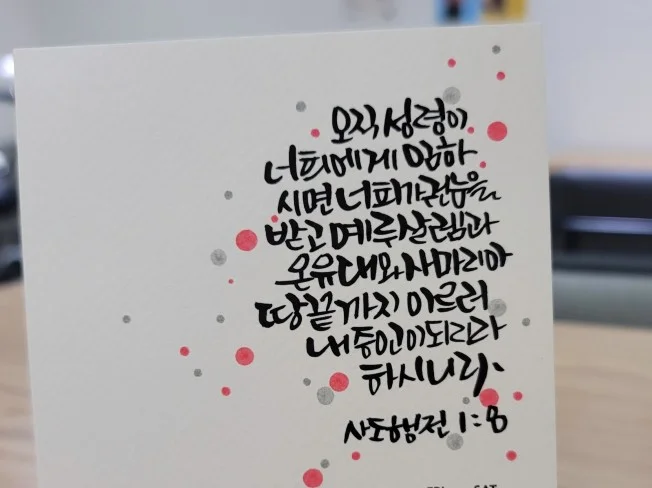 오직 성령이
너희에게 임하
시면 너희가 권능을
받고 예루살렘과
온유대와 사마리아
땅끝까지 이르러
내 증인이 되리라
하시니라
사도행전 1:8
SAT